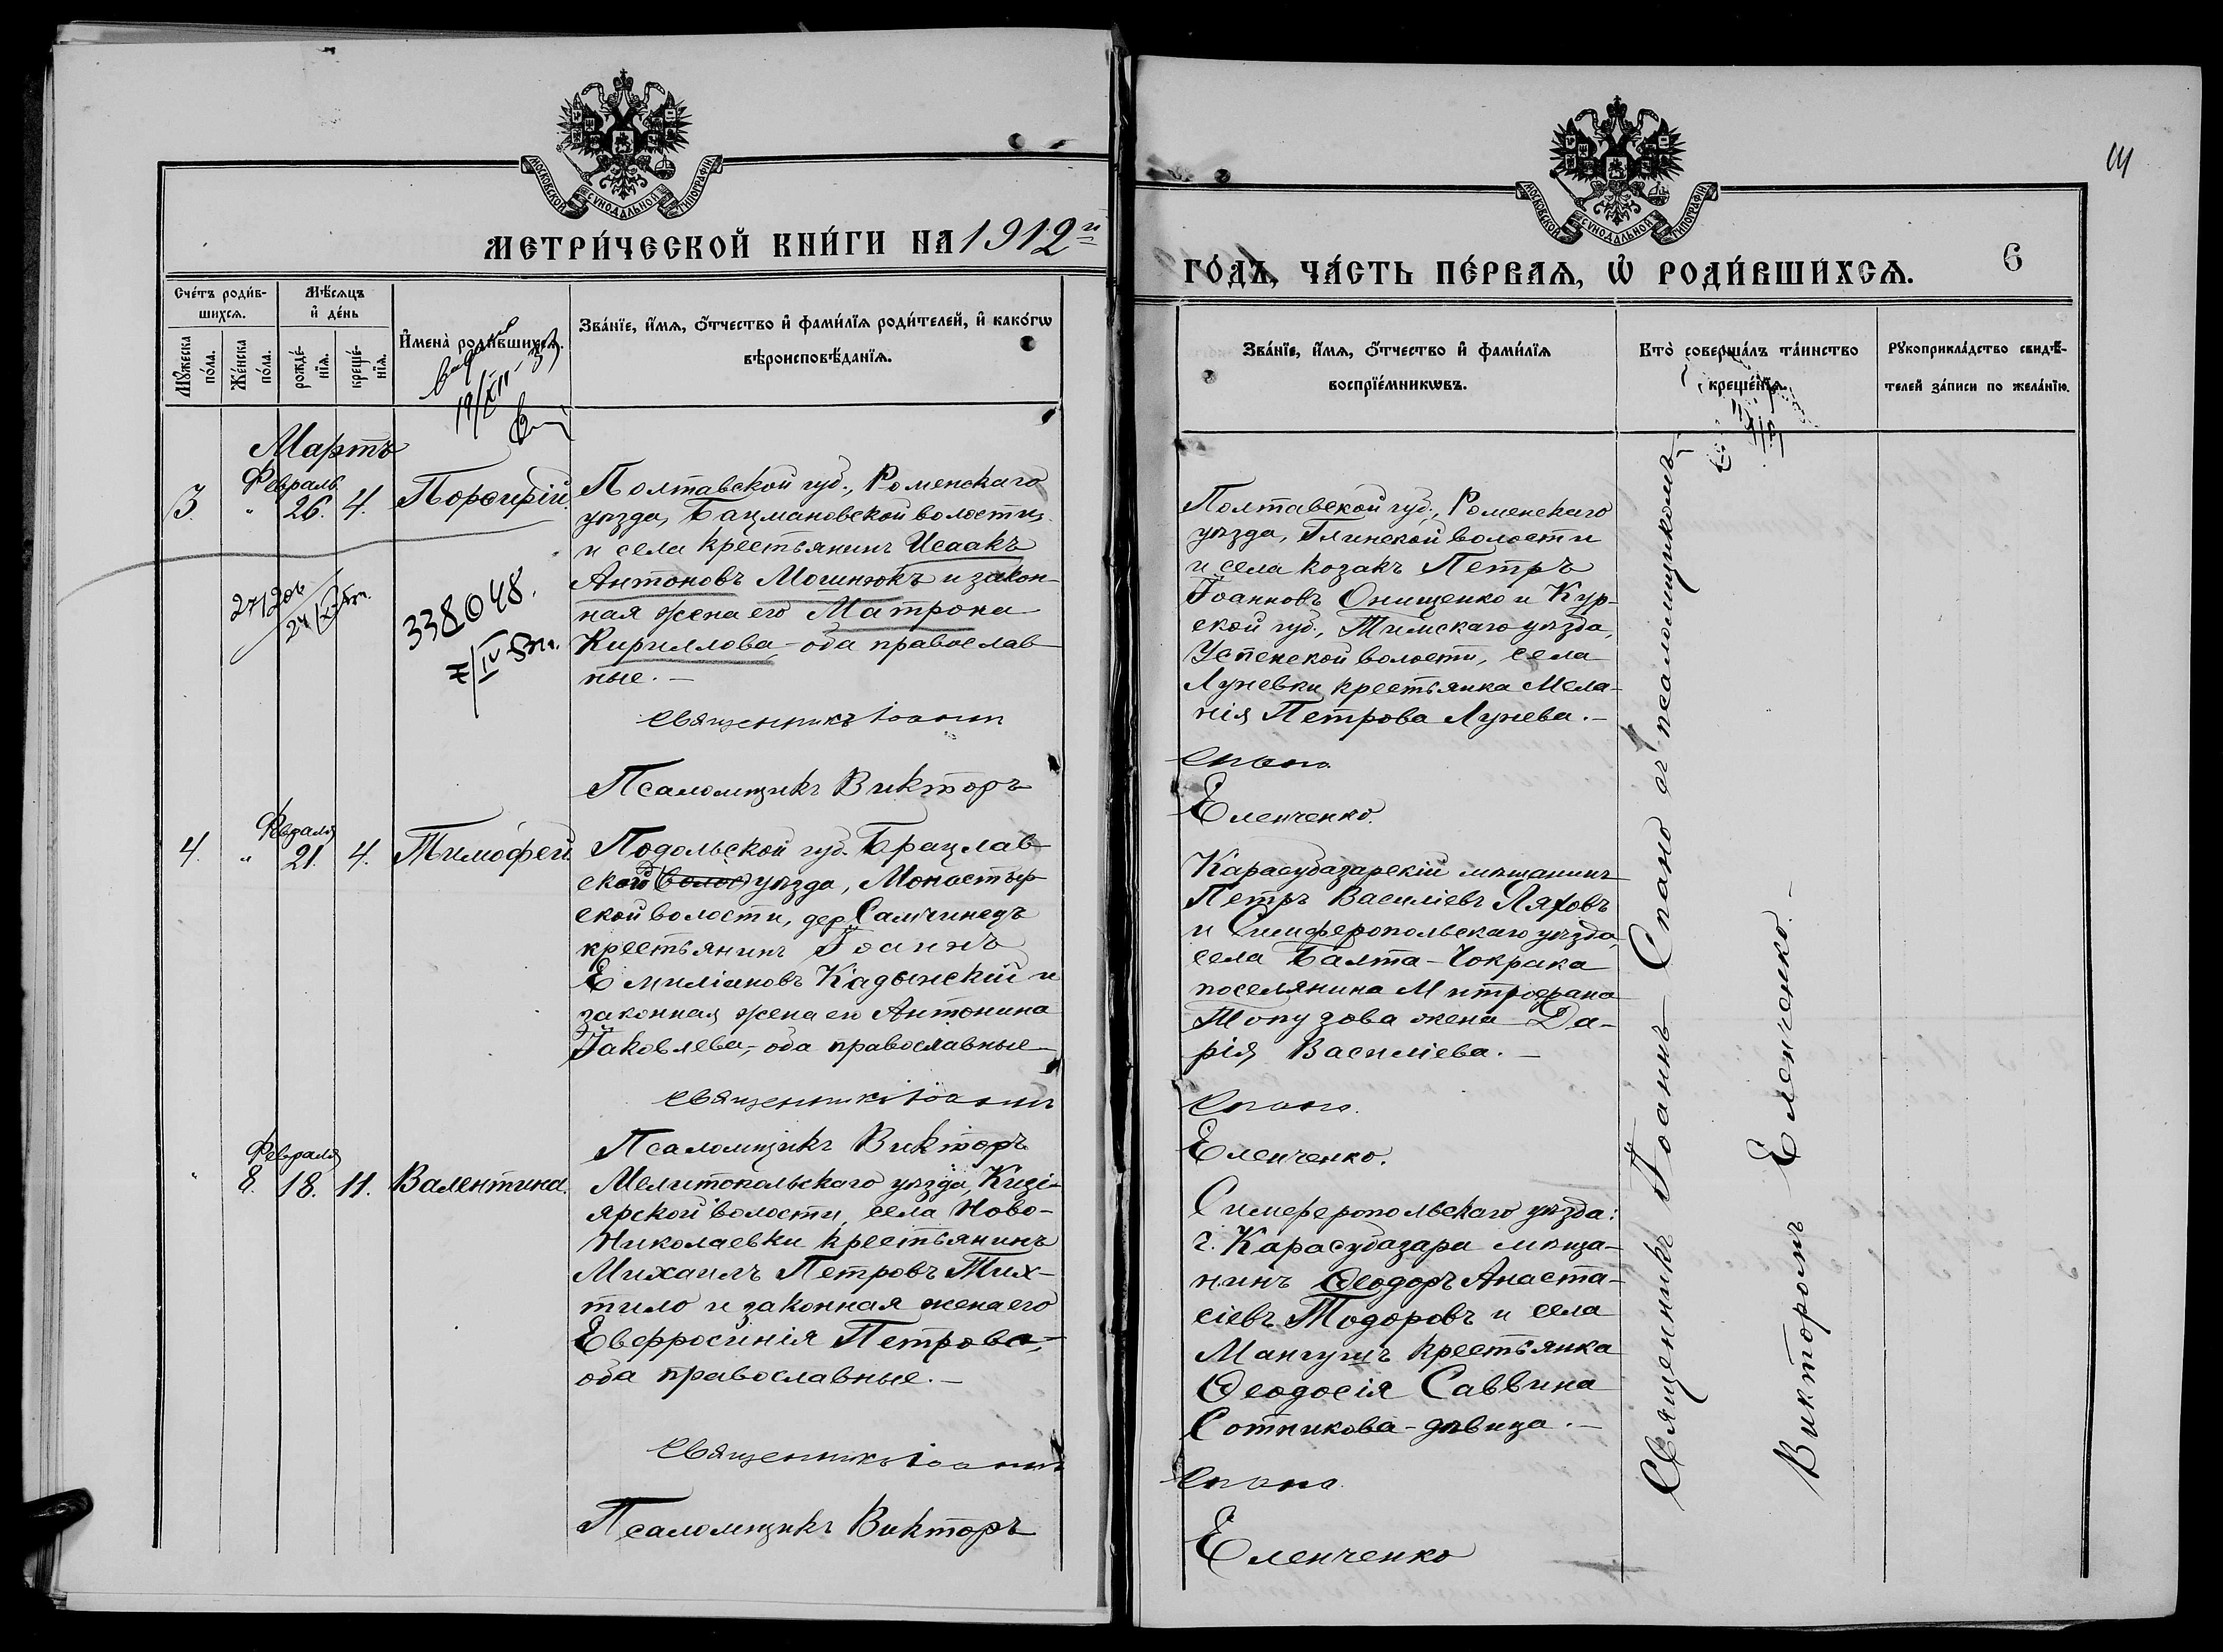 МОСКОВСКОЙ СѴНОДАЛЬНОЙ ТИПОГРАФІИ
МЕТРИ́ЧЕСКОЙ КНИ́ГИ НА 1912й
Сче́тъ роди́в-
шихсѧ.
Мѣ́сѧцъ
и҆ де́нь
Мꙋ́жеска
по́ла.
Же́нска
по́ла.
рожде́-
нїѧ.
креще́-
нїѧ.
И҆мена̀ роди́вшихсѧ.
Зва́нїе, и҆́мѧ, ѻ҆́тчество и҆ фами́лїѧ роди́телей, и҆ како́гѡ
вѣроисповѣ́данїѧ.
19/XII-
Мартъ
Февраль
3. " 26. 4. Порфирій.
Полтавской губ., Роменскаго
уѣзда, Бацмановской волости,
и села крестьянинъ Исаакъ
Антоновъ Могинюкъ и закон-
ная жена его Матрона
Кириллова,- оба православ
ные.-
271206
338048.
Священникъ Іоаннъ
Псаломщикъ Викторъ
Февраля
4. " 21. 4. Тимофей.
Подольской губ. Брацлав-
ского (волос) уѣзда, Монастыр
ской волости, дер. Самчинецъ
крестьянинъ Іоаннъ
Емиліановъ Кадынскій и
законная жена его Антонина
Іаковлева,- оба православные
Священникъ Іоаннъ
Псаломщикъ Викторъ
Февраля
" 8. 18. 11. Валентина.
Мелитопальскаго уѣзда, Кизі-
ярской волости, села Ново-
Николаевки крестьянинъ
Михаилъ Петровъ Тих-
тило и законная жена его
Евфросинія Петрова,-
оба православные.-
Священникъ Іоаннъ
Псаломщикъ Викторъ
МОСКОВСКОЙ СѴНОДАЛЬНОЙ ТИПОГРАФІИ
ГО́ДЪ, ЧА́СТЬ ПЕ́РВАѦ, Ѡ҆ РОДИ́ВШИХСѦ.
6
Зва́нїе, и҆́мѧ, ѻ҆́тчество и҆ фами́лїѧ
воспрїе́мникѡвъ.
Кто̀ соверша́лъ та́инство
креще́нїѧ.
Рꙋкоприкла́дство свидѣ́-
телей за́писи по жела́нїю.
Полтавской губ., Роменскаго
уѣзда, Глинской волости
и села козакъ Петръ
Іоанновъ Онищенко и Кур-
ской губ., Тимскаго уѣзда,
Успенской волости, села
Луневки крестьянка Мела-
нія Петрова Лунева.-
Спано
Еленченко.
Карасубазарскій мѣщанинъ
Петръ Василіевъ Ляховъ
и Симферопольскаго уѣзда,
села Балта-Чокрака
поселянина Митрофана
Топузова жена Да-
рія Василіева.-
Спано.
Еленченко.
Симферопольскаго уѣзда:
г. Карасубазара мѣща-
нинъ Ѳеодоръ Анаста-
сіевъ Тодоровъ и села
Мангушъ крестьянка
Ѳеодосія Саввина
Сотникова-дѣвица.-
Спано.
Еленченко
Священникъ Іоаннъ Спано съ псаломщикомъ
Викторомъ Еленченко.-